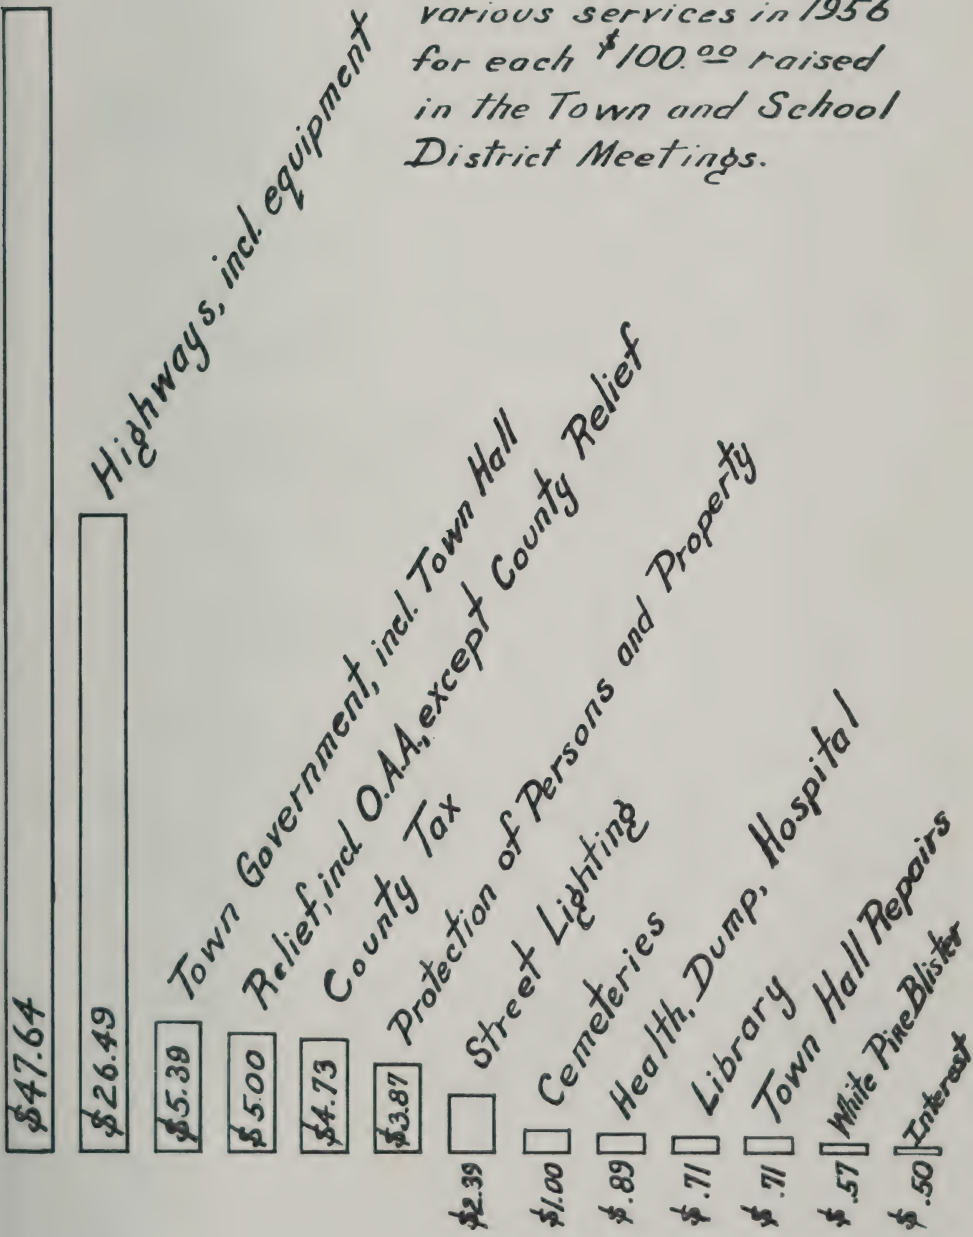 various services in 1956
for each $100.00 raised
in the Town and School
District Meetings.
$47.64
$26.49
Highways, incl. equipment
$5.39
Town Government, incl. Town Hall
$5.00
Relief, incl. O.A.A., except County Relief
$4.73
County Tax
$3.87
Protection of Persons and Property
$2.39
Street Lighting
$1.00
Cemeteries
$.89
Health, Dump, Hospital
$.71
Library
$.71
Town Hall Repairs
$.57
White Pine Blister
$.50
Interest